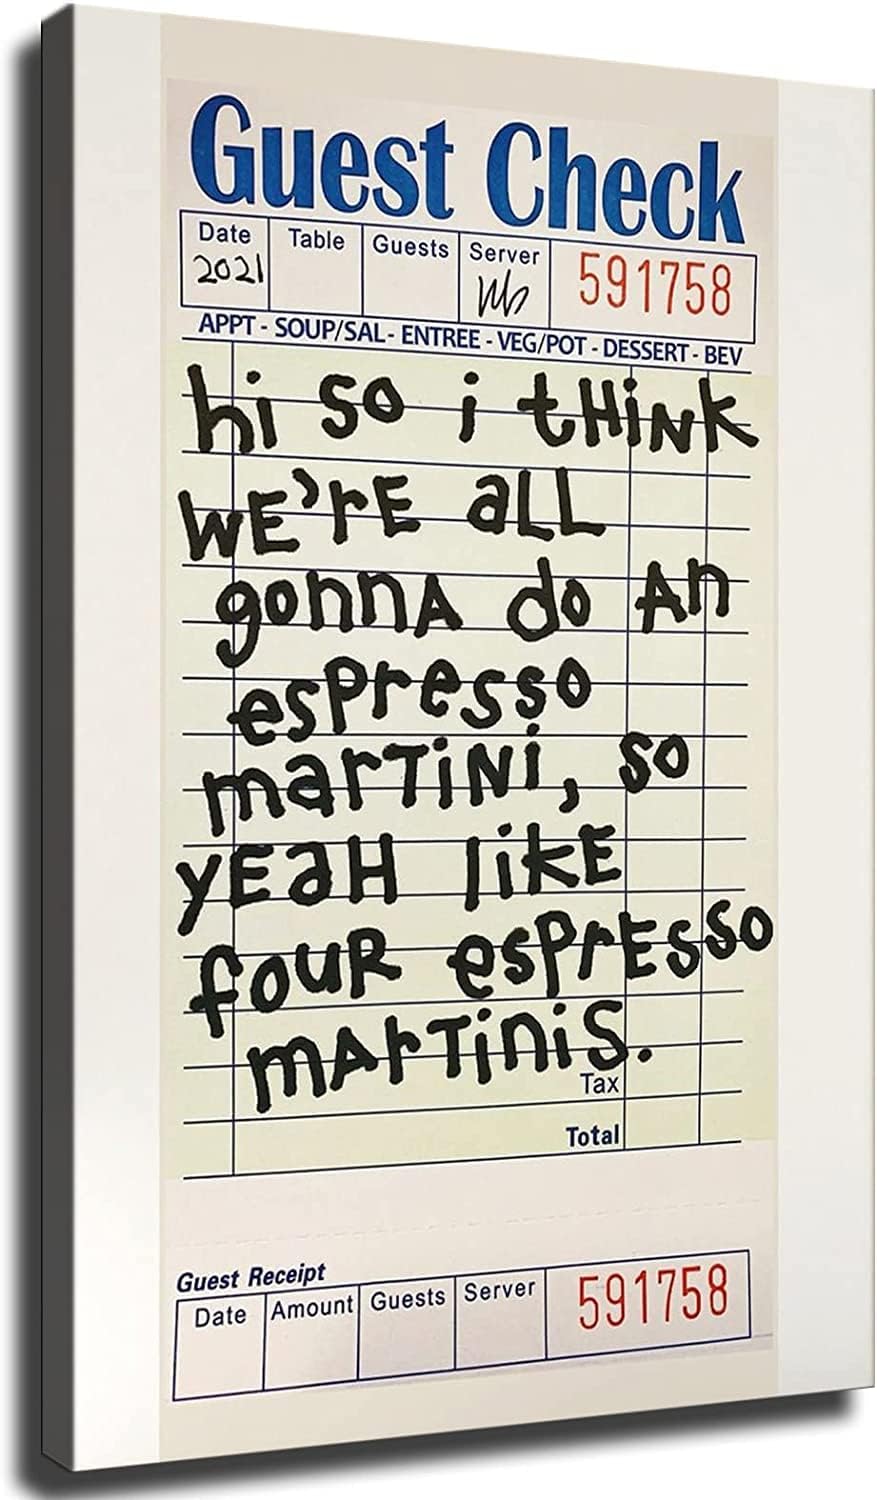 Guest Check
Date Table Guests Server 591758
2021
APPT - SOUP/SAL - ENTREE - VEG/POT - DESSERT - BEV
hi so i tHiNK
WE'rE aLL
gonnA do An
espresso
marTiNi, so
YEaH liKE
fouR esPrEsso
mArTiniS.
Tax
Total
Guest Receipt
Date Amount Guests Server 591758